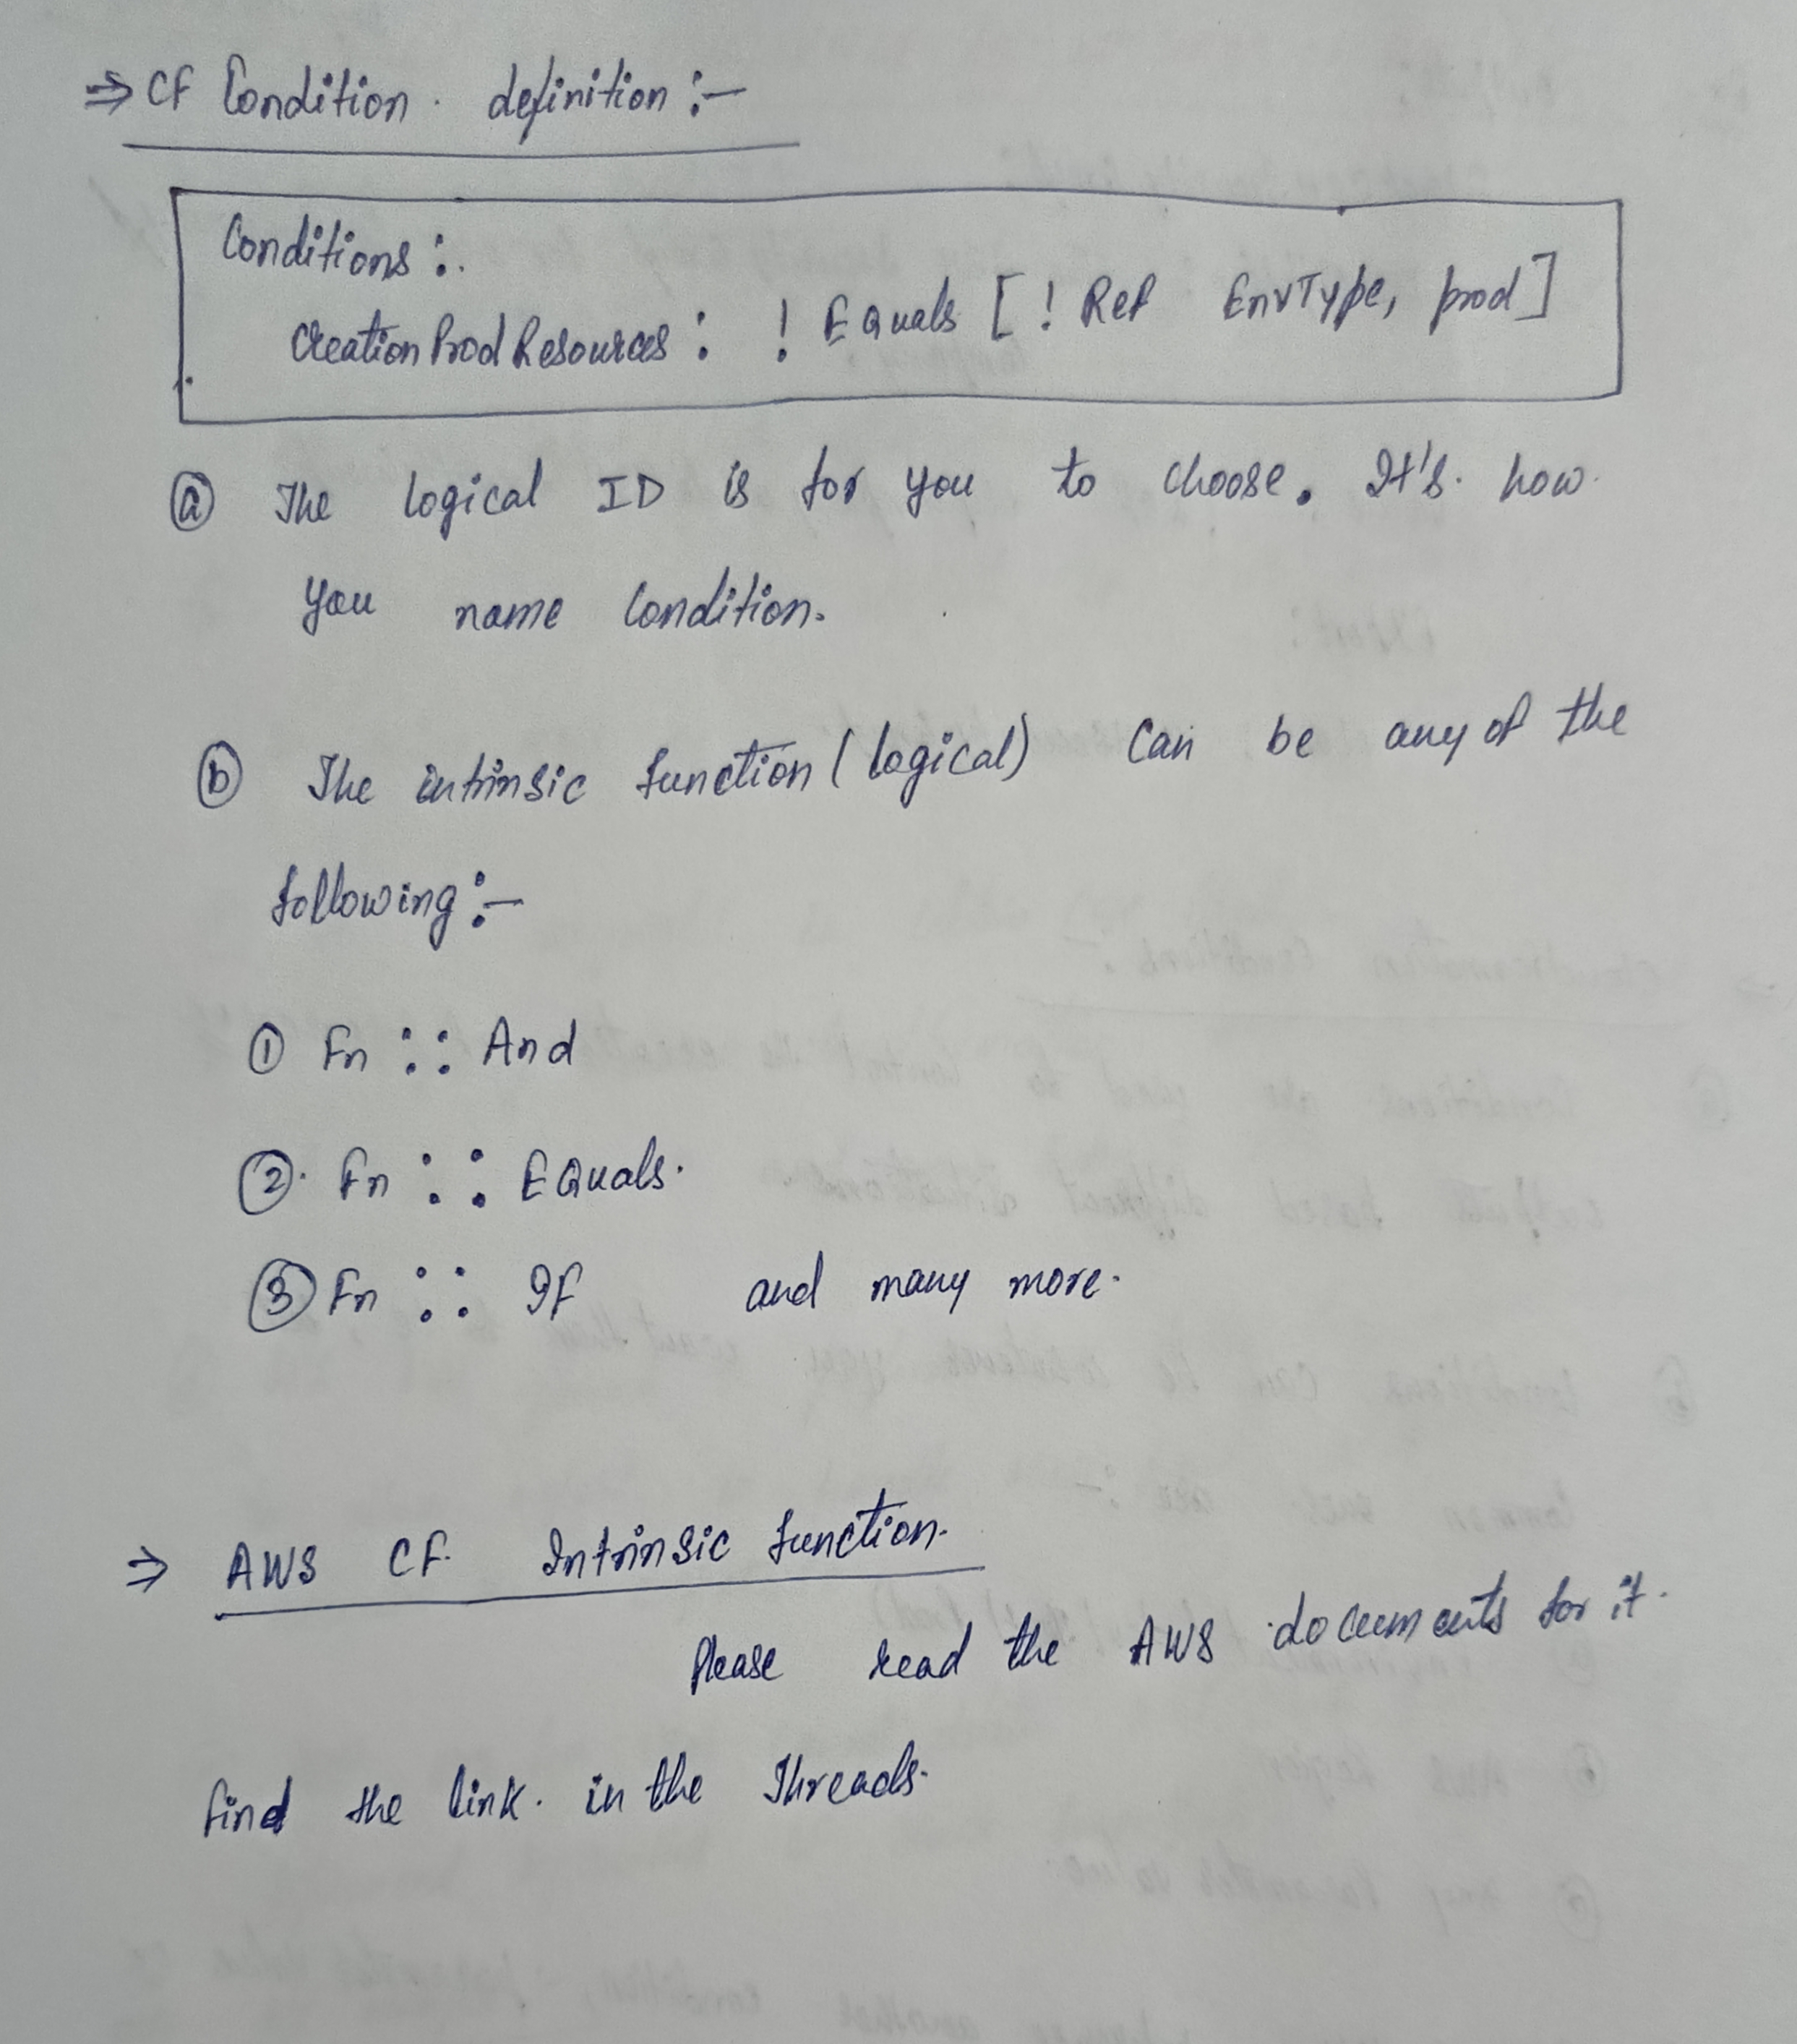 ⇒ CF Condition definition :-
Conditions :
CreationProdResources : ! Equals [ ! Ref EnvType, prod ]
ⓐ The logical ID is for you to choose. It's how
you name Condition.
ⓑ The intrinsic function (logical) Can be any of the
following :-
① Fn :: And
② Fn :: Equals.
③ Fn :: If and many more.
⇒ AWS CF Intrinsic function.
Please read the AWS documents for it.
find the link in the Threads.